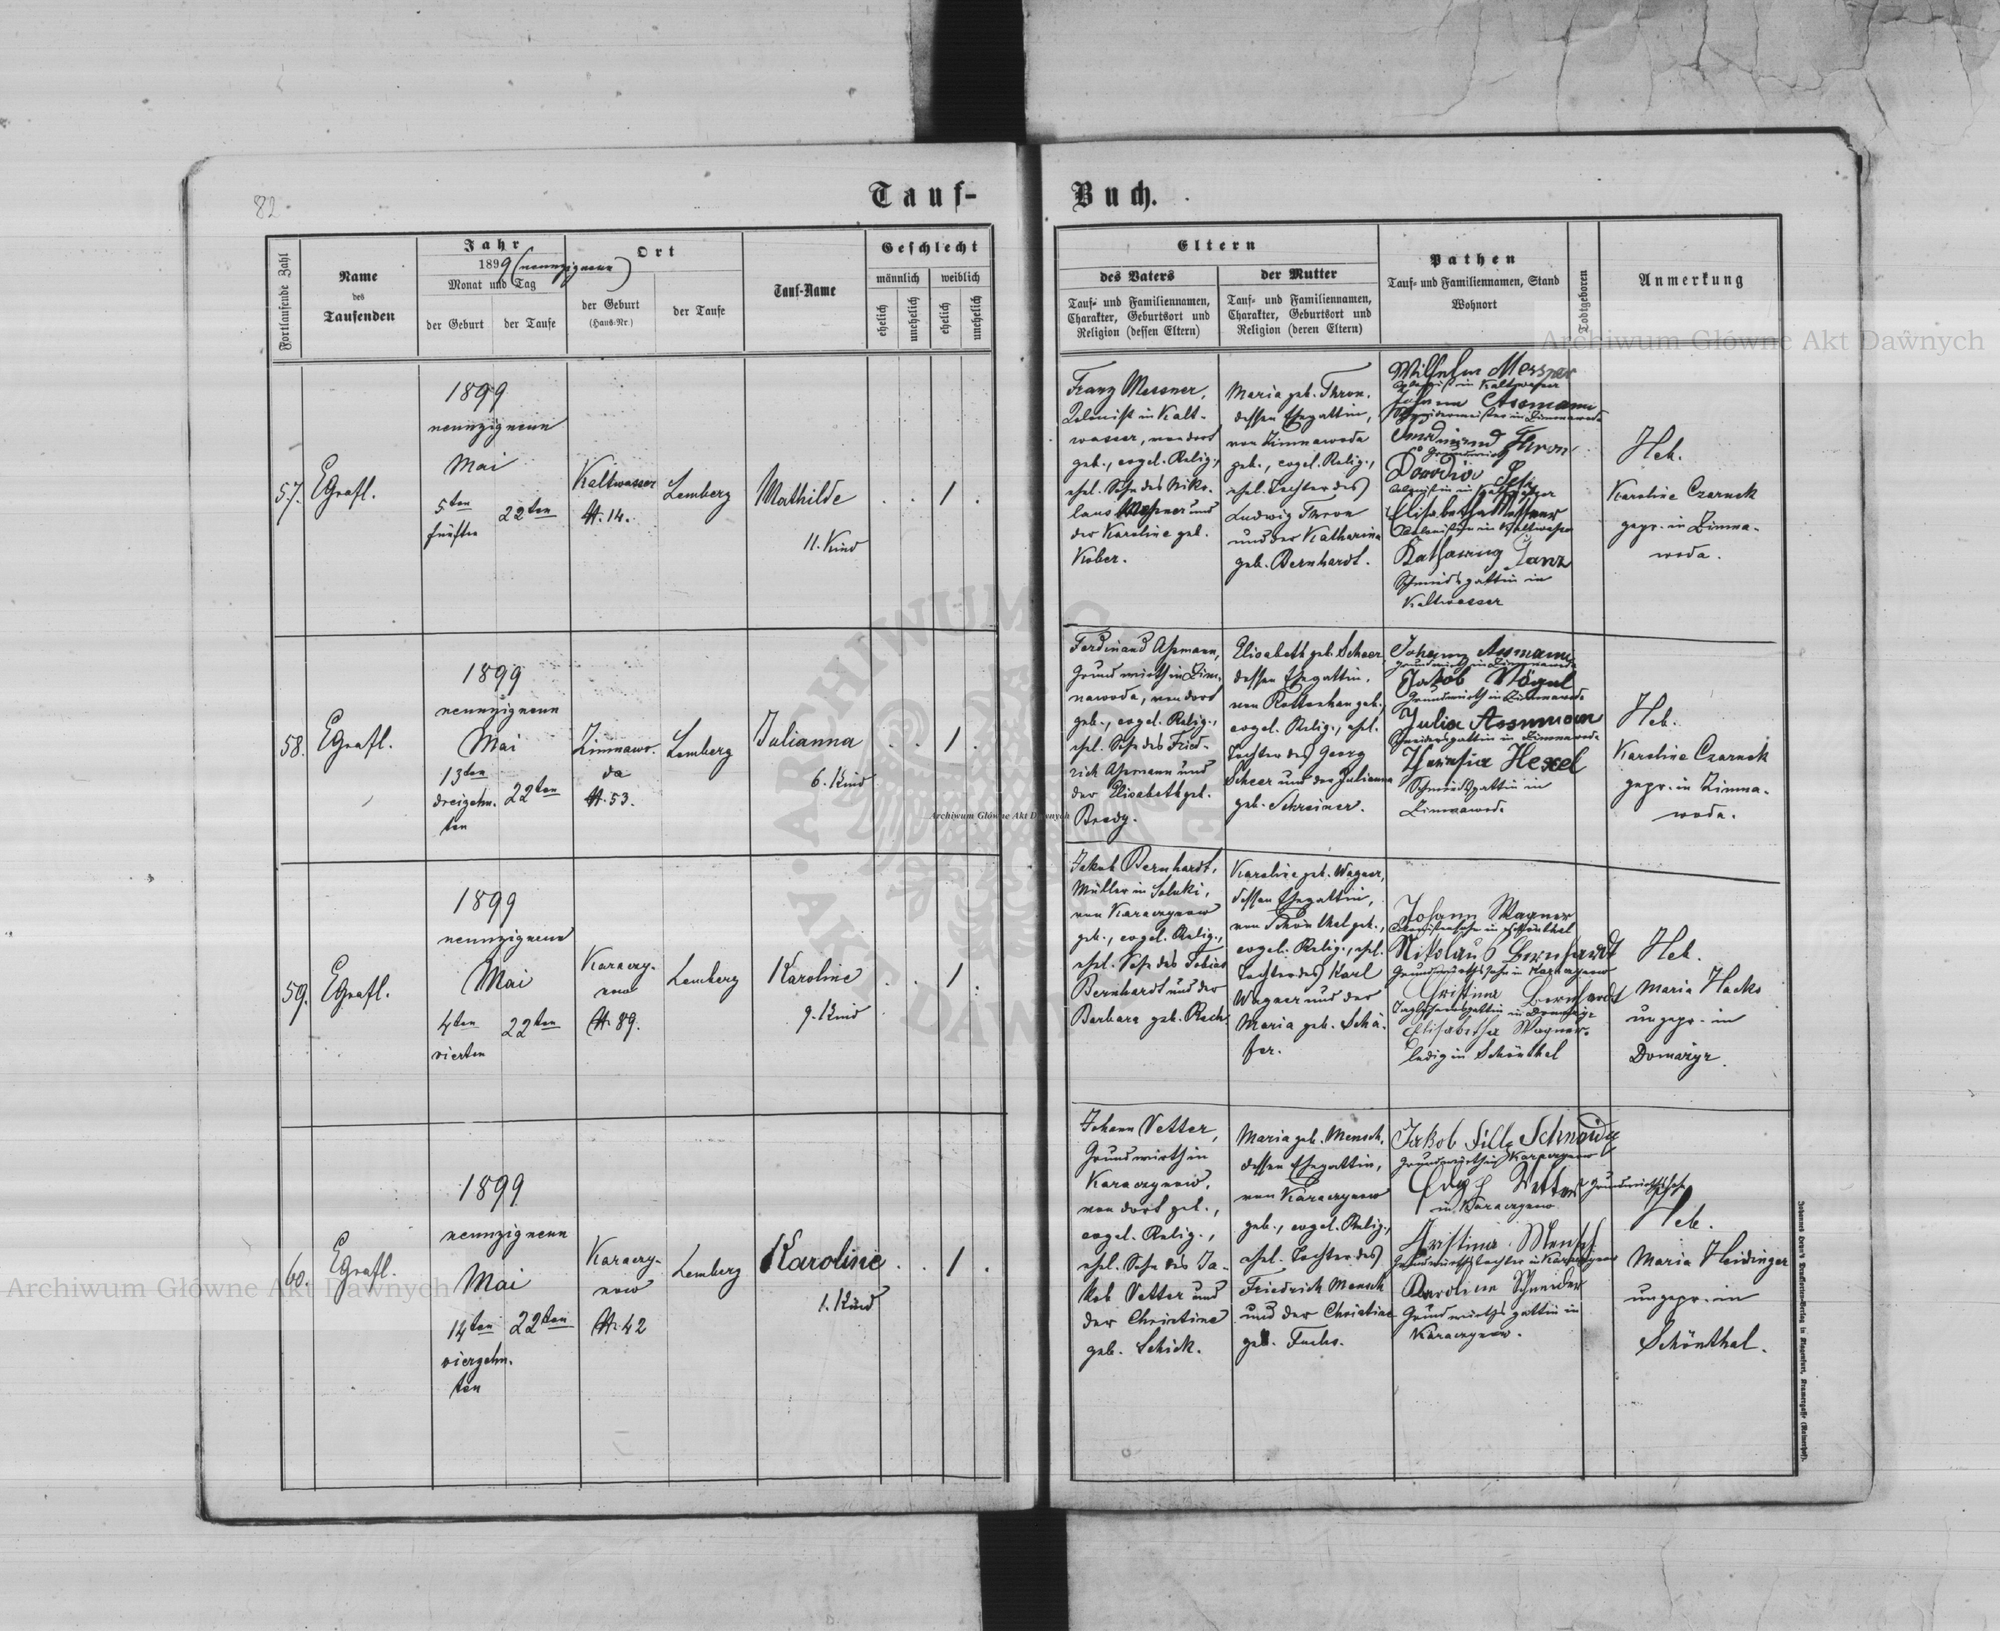 82.
Tauf-
Buch.
Fortlaufende Zahl
Name
des
Taufenden
Jahr
1899 (neunzigneun)
Monat und Tag
der Geburt
der Taufe
Ort
der Geburt
(Haus-Nr.)
der Taufe
Tauf-Name
Geschlecht
männlich
weiblich
ehelich
unehelich
ehelich
unehelich
Eltern
des Vaters
Tauf- und Familiennamen,
Charakter, Geburtsort und
Religion (dessen Eltern)
der Mutter
Tauf- und Familiennamen,
Charakter, Geburtsort und
Religion (deren Eltern)
Pathen
Tauf- und Familiennamen, Stand
Wohnort
Todtgeboren
Anmerkung
57.
EGrafl.
1899
neunzigneun
Mai
5ten
fünften
22ten
Kaltwasser
N. 14.
Lemberg
Mathilde
11. Kind
1
Franz Messner,
Kolonist in Kalt-
wasser, von dort
geb., evgel. Relig.,
ehel. Sohn des Niko-
laus Messner und
der Karoline geb.
Kober.
Maria geb. Thron,
dessen Ehegattin,
von Zimnawoda
geb., evgel. Relig.,
ehel. Tochter des
Ludwig Thron
und der Katharina
geb. Bernhardt.
Wilhelm Messner
Kolonist in Kaltwasser
Johann Assmann
in Zimnawoda
Ferdinand Thron
Grundwirth
Elisabetha Messner
Kolonistin in Kaltwasser
Katharina Ganz
Schmidsgattin in
Kaltwasser
Heb.
Karoline Czarnek
gepr. in Zimna-
woda.
58.
EGrafl.
1899
neunzigneun
Mai
13ten
dreizehn-
ten
22ten
Zimnawo-
da
N. 53.
Lemberg
Julianna
6. Kind
1
Ferdinand Aßmann,
Grundwirth in Zim-
nawoda, von dort
geb., evgel. Relig.,
ehel. Sohn des Fried-
rich Aßmann und
der Elisabeth geb.
Bredy.
Elisabeth geb. Scheer,
dessen Ehegattin,
von Rottenhan geb.,
evgel. Relig., ehel.
Tochter des Georg
Scheer und der Julianna
geb. Schreiner.
Johann Assmann
Grundwirth in Zimnawoda
Jakob Vögel
Grundwirth in Zimnawoda
Julia Assmann
in Zimnawoda
Theresia Hexel
Schmidsgattin in
Zimnawoda
Heb.
Karoline Czarnek
gepr. in Zimna-
woda.
59.
EGrafl.
1899
neunzigneun
Mai
4ten
vierten
22ten
Karaczy-
now
N. 89.
Lemberg
Karoline
9. Kind
1
Jakob Bernhardt,
Müller in Soluki,
von Karaczynow
geb., evgel. Relig.,
ehel. Sohn des Tobias
Bernhardt und der
Barbara geb. Rech.
Karoline geb. Wagner,
dessen Ehegattin,
von Schönthal geb.,
evgel. Relig., ehel.
Tochter des Karl
Wagner und der
Maria geb. Schä-
fer.
Johann Wagner
in Schönthal
Nikolaus Bernhardt
Grundwirthssohn in Karaczynow
Christina Bernhardt
Taglöhnersgattin in Domażyr
Elisabetha Wagner
ledig in Schönthal
Heb.
Maria Hacks
ungepr. in
Domażyr.
60.
EGrafl.
1899
neunzigneun
Mai
14ten
vierzehn-
ten
22ten
Karaczy-
now
N. 42
Lemberg
Karoline
1. Kind
1
Johann Vetter,
Grundwirth in
Karaczynow,
von dort geb.,
evgel. Relig.,
ehel. Sohn des Ja-
kob Vetter und
der Christine
geb. Schick.
Maria geb. Mensch,
dessen Ehegattin,
von Karaczynow
geb., evgel. Relig.,
ehel. Tochter des
Friedrich Mensch
und der Christine
geb. Fuchs.
Jakob Schneider
Grundwirth in Karaczynow
Vetter Grundwirthssohn
in Karaczynow
Kristina Mensch
Grundwirthstochter in Karaczynow
Karolina Schneider
Grundwirthsgattin in
Karaczynow.
Heb.
Maria Heidinger
ungepr. in
Schönthal.
Archiwum Główne Akt Dawnych
Archiwum Główne Akt Dawnych
Archiwum Główne Akt Dawnych